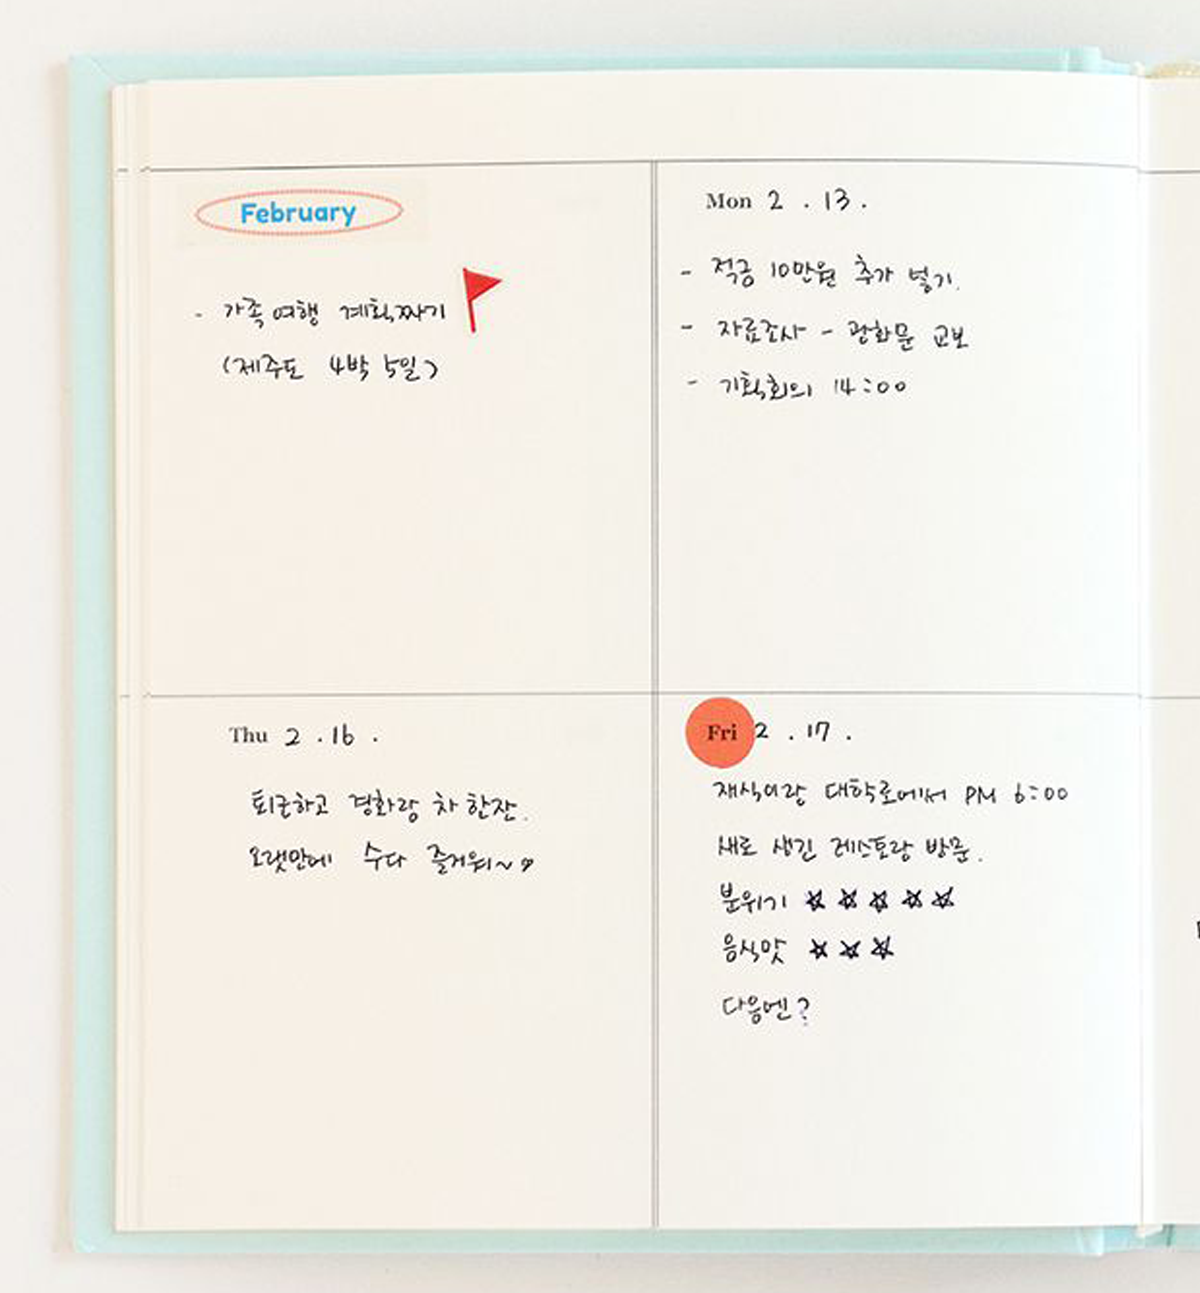 February
- 가족여행 계획짜기
(제주도 4박 5일)
Mon 2 . 13 .
- 적금 10만원 추가 넣기.
- 자료조사 - 광화문 교보
- 기획회의 14:00
Thu 2 . 16 .
퇴근하고 경화랑 차 한잔.
오랫만에 수다 즐거워~♡
Fri 2 . 17 .
재식이랑 대학로에서 PM 6:00
새로 생긴 레스토랑 방문.
분위기 ☆☆☆☆☆
음식맛 ☆☆☆
다음엔?